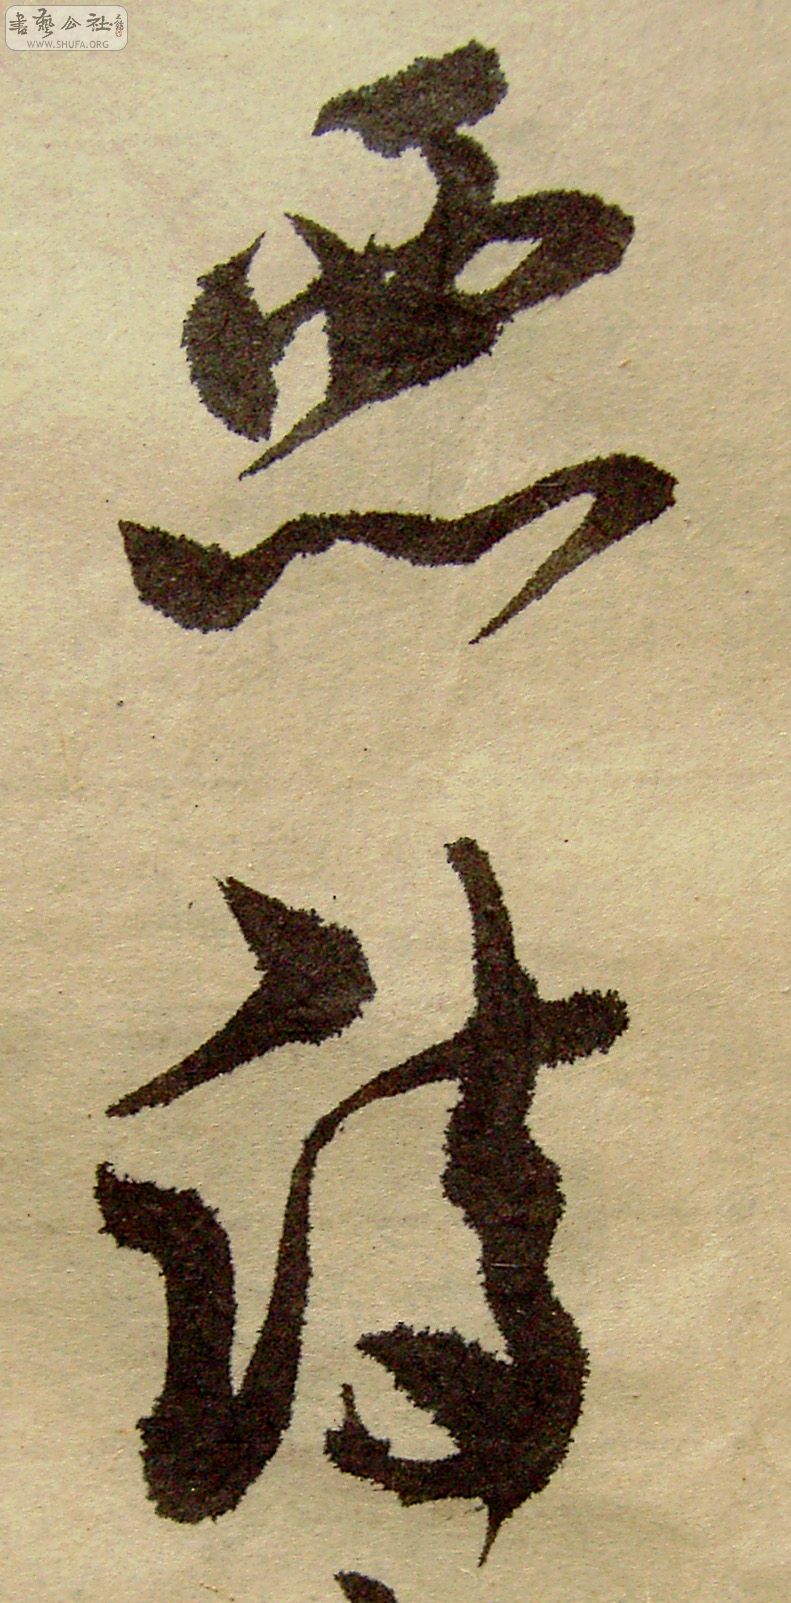 書藝公社
WWW.SHUFA.ORG
惡
詩